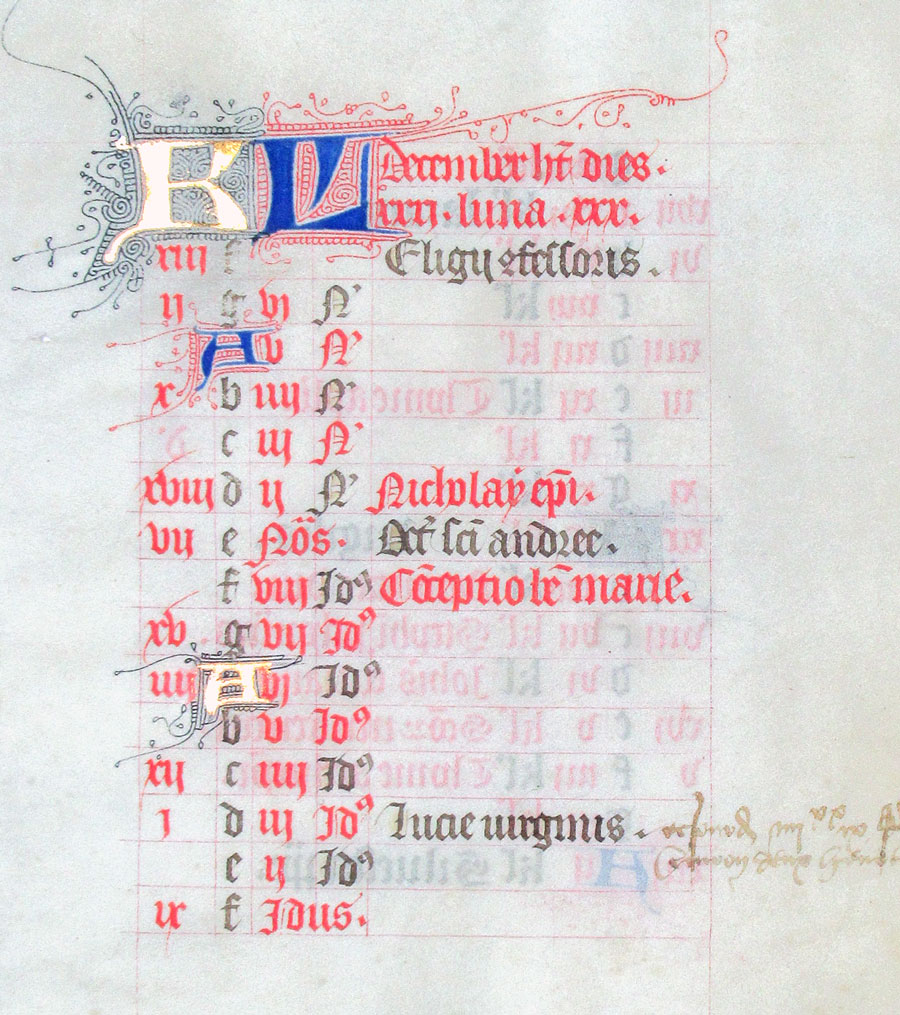 KL December ht̄ dies.
xxxi. luna .xxx.
xiii f Eligii ꝯfessoris.
ii g vi N'
A v N'
x b iiii N'
c iii N'
xviii d ii N' Nicholaÿ ep̄i.
vii e Nōs. Oct̄ sc̄i andree.
f viii Idꝰ Cōceptio be̅ marie.
xv g vii Idꝰ
iiii A vi Idꝰ
b v Idꝰ
xii c iiii Idꝰ
i d iii Idꝰ Lucie uirginis.
e ii Idꝰ
ix f Idus.